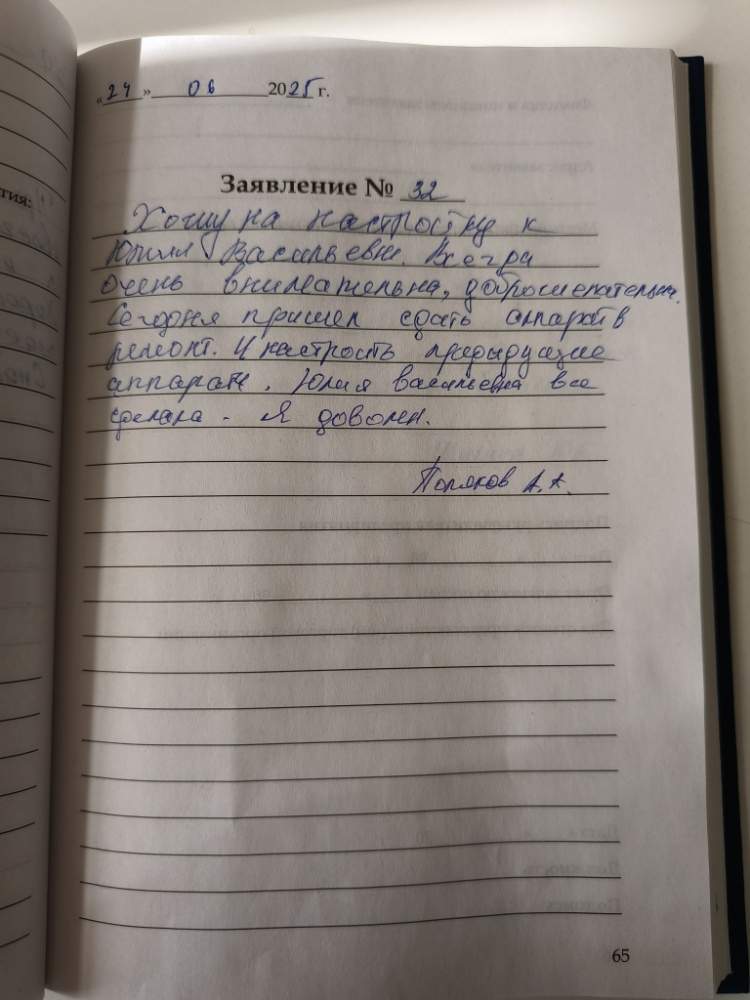 «24» 06 2025 г.
Заявление № 32
Хожу на настройку к
Юлии Васильевне. Всегда
очень внимательна, доброжелательна.
Сегодня пришел сдать аппарат в
ремонт. И настроить предыдущие
аппараты. Юлия Васильевна все
сделала. Я доволен.
Поляков А.А.
65
тия: